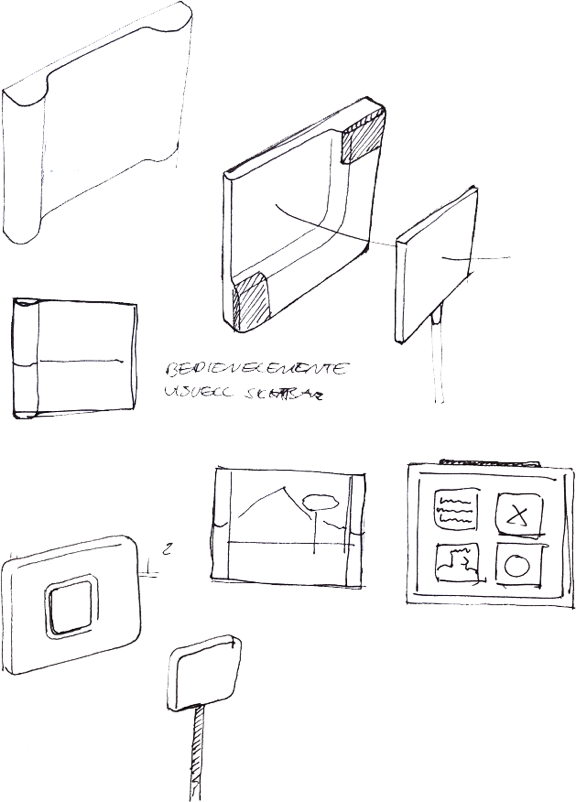 BEDIENELEMENTE
VISUELL SICHTBAR